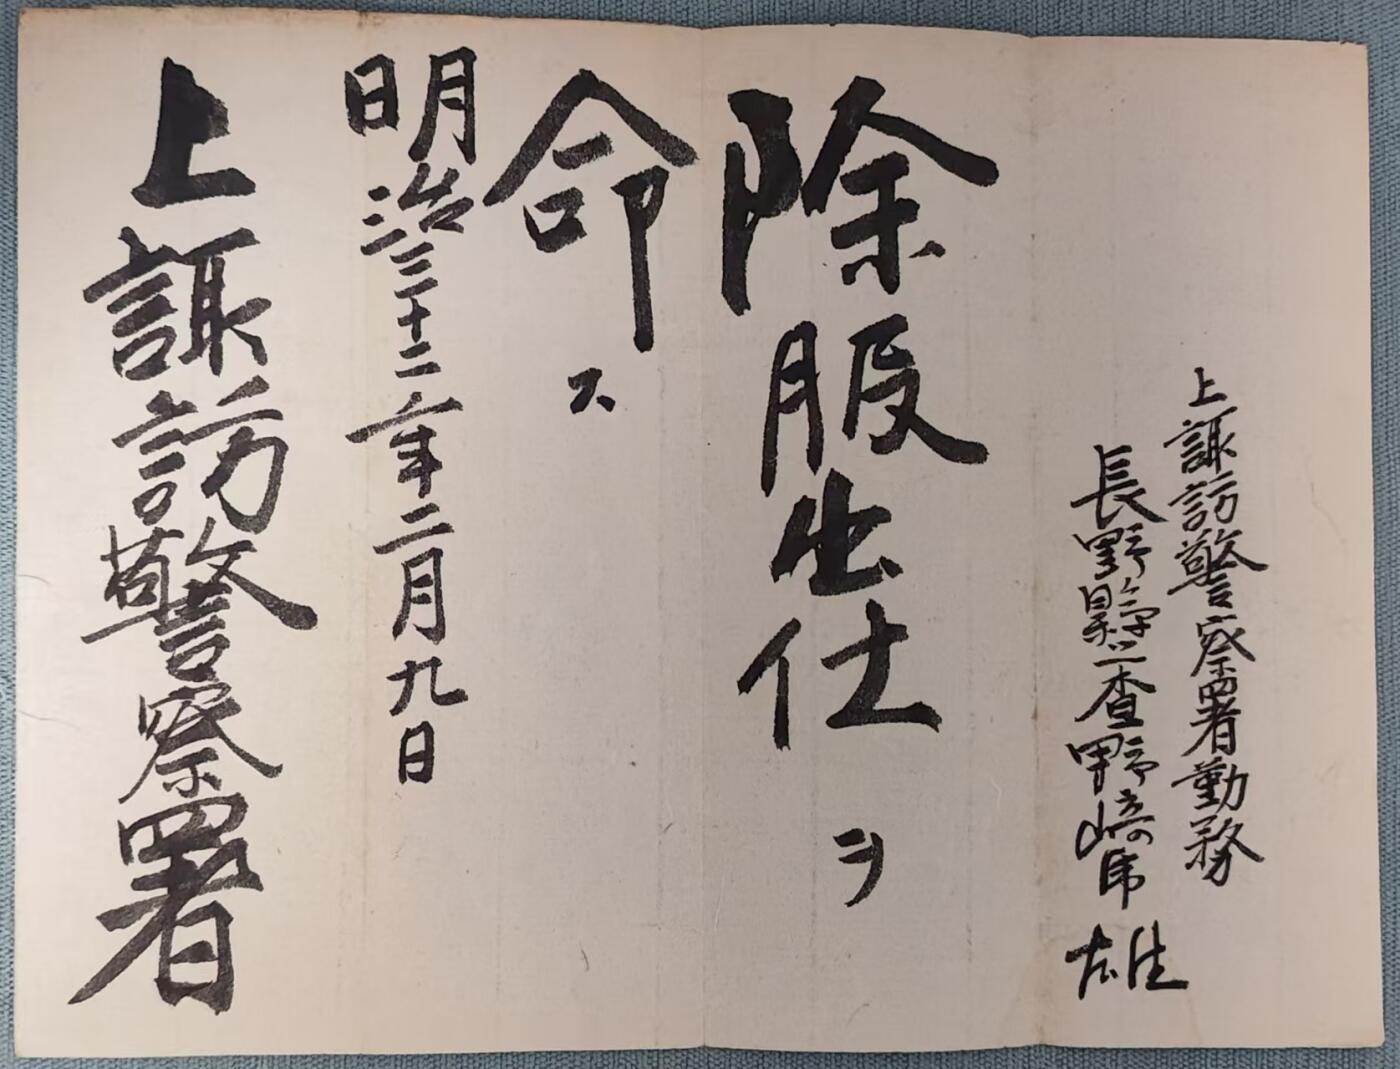 上諏訪警察署勤務
長野縣巡査野崎乕雄
除服出仕ヲ
命ス
明治三十二年二月九日
上諏訪警察署